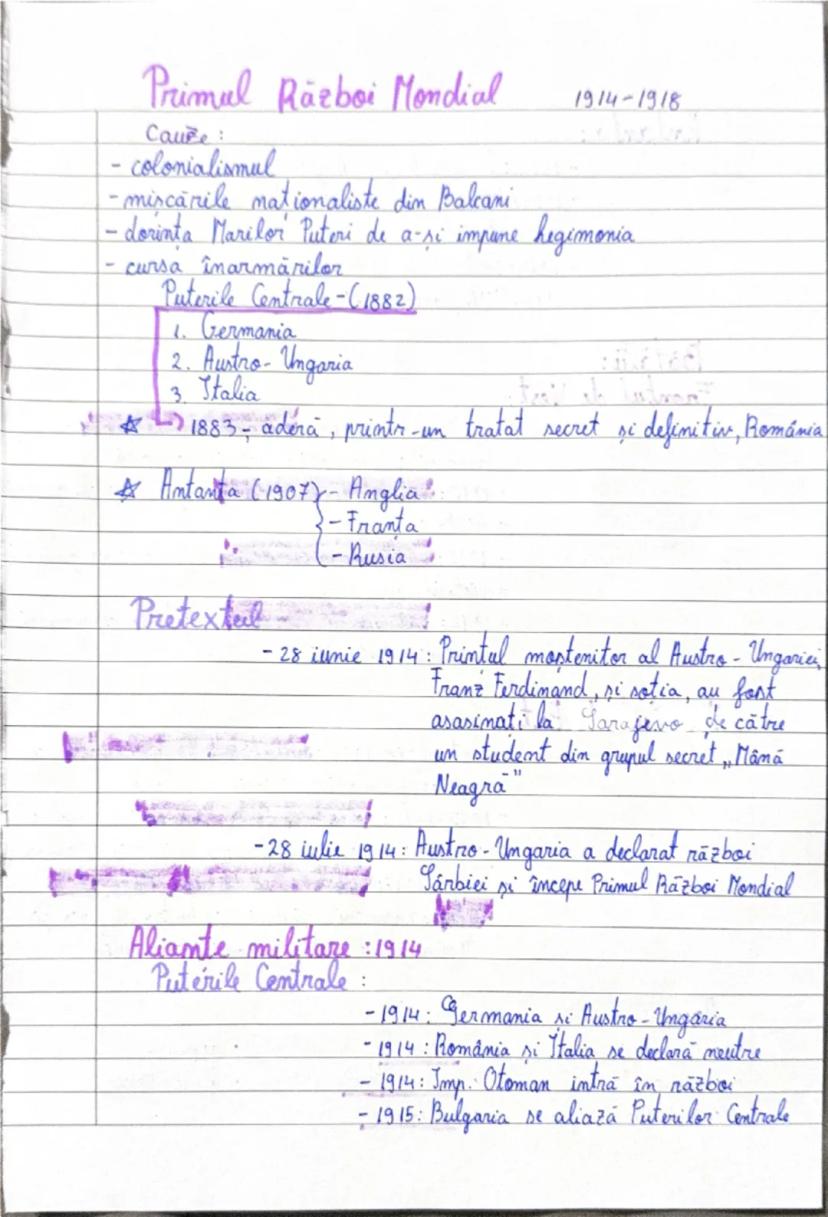 Primul Război Mondial 1914-1918
Cauze:
- colonialismul
- mișcările naționaliste din Balcani
- dorința Marilor Puteri de a-și impune hegimonia
- cursa înarmărilor
Puterile Centrale - (1882)
1. Germania
2. Austro-Ungaria
3. Italia
1883 - aderă, printr-un tratat secret și definitiv, România
Antanta (1907) - Anglia
- Franța
- Rusia
Pretextul
- 28 iunie 1914: Printul moștenitor al Austro-Ungariei,
Franz Ferdinand, și soția, au fost
asasinați la Sarajevo de către
un student din grupul secret „Mână
Neagră"
- 28 iulie 1914: Austro-Ungaria a declarat război
Sârbiei și începe Primul Război Mondial
Aliante militare : 1914
Puterile Centrale :
- 1914: Germania și Austro-Ungaria
- 1914: România și Italia se declară neutre
- 1914: Imp. Otoman intră în război
- 1915: Bulgaria se aliază Puterilor Centrale